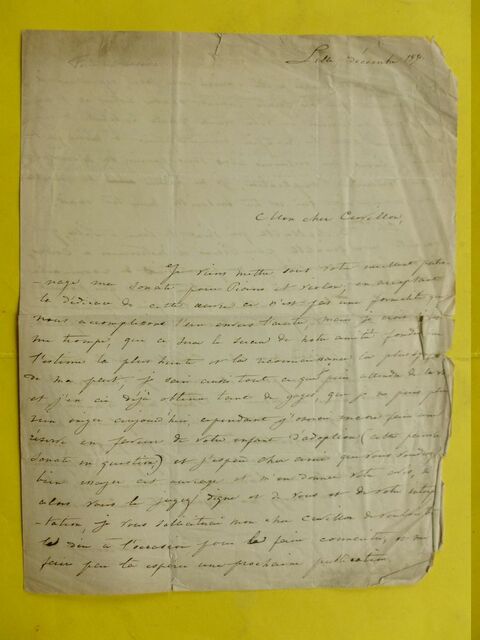 Lille, décembre
Mon cher Cuvillon,
Je viens mettre sous votre excellent patro-
-nage ma Sonate pour Piano et Violon, en acceptant
la dédicace de cette œuvre ce n'est pas une formalité que
nous accomplissons l'un envers l'autre, mais je crois
me trompé, que ce sera le sceau de notre amitié fondée
l'estime la plus haute et la reconnaissance la plus
de ma part, je sais aussi tout ce que puis attendre de la
et j'en ai déjà obtenu tant de gages, que je ne puis plus
rien exiger aujourd'hui, cependant j'oserai encore faire une
réserve en faveur de votre enfant d'adoption (cette pauvre
Sonate en question) et j'espère cher ami que vous voudrez
bien essayer cet ouvrage et m'en donner votre avis,
alors vous le jugez digne et de vous et de votre
-tation, je vous solliciterai mon cher Cuvillon de vouloir
le dire à l'occasion pour le faire connaître,
faire peu la espérer une prochaine publication.